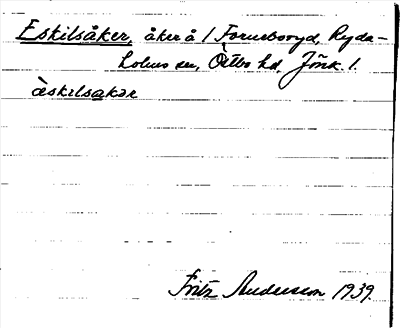 Eskilsåker, åker å 1 Forneboryd, Ryda-
holms sn, Östbo hd, Jönk. l.
ꜵ̀skɩlsakər
Fritz Andersson 1939.